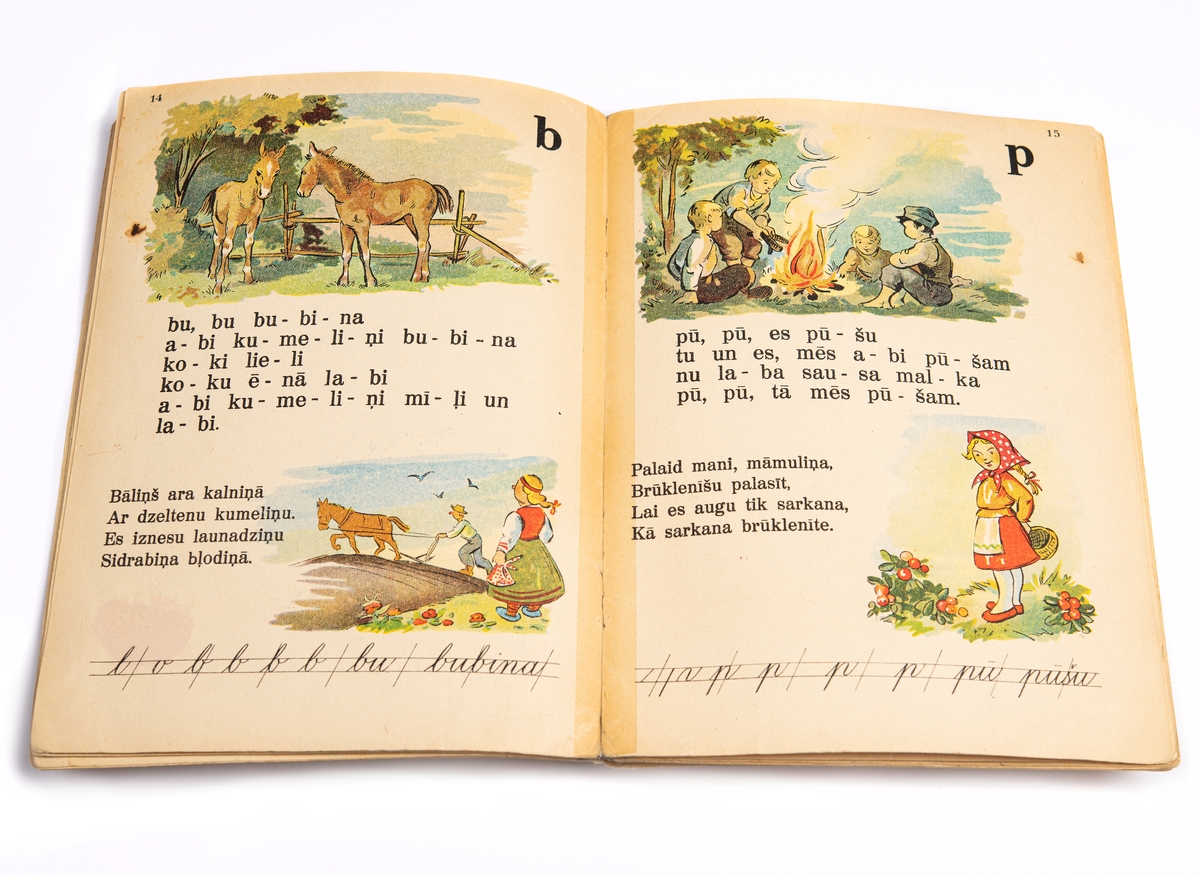 14
b
bu, bu bu - bi - na
a - bi ku - me - li - ņi bu - bi - na
ko - ki lie - li
ko - ku ē - nā la - bi
a - bi ku - me - li - ņi mī - ļi un
la - bi.
Bāliņš ara kalniņā
Ar dzeltenu kumeliņu.
Es iznesu launadziņu
Sidrabiņa bļodiņā.
b o b b b b bu bubina
15
p
pū, pū, es pū - šu
tu un es, mēs a - bi pū - šam
nu la - ba sau - sa mal - ka
pū, pū, tā mēs pū - šam.
Palaid mani, māmuliņa,
Brūklenīšu palasīt,
Lai es augu tik sarkana,
Kā sarkana brūklenīte.
p p p p pū pūšu